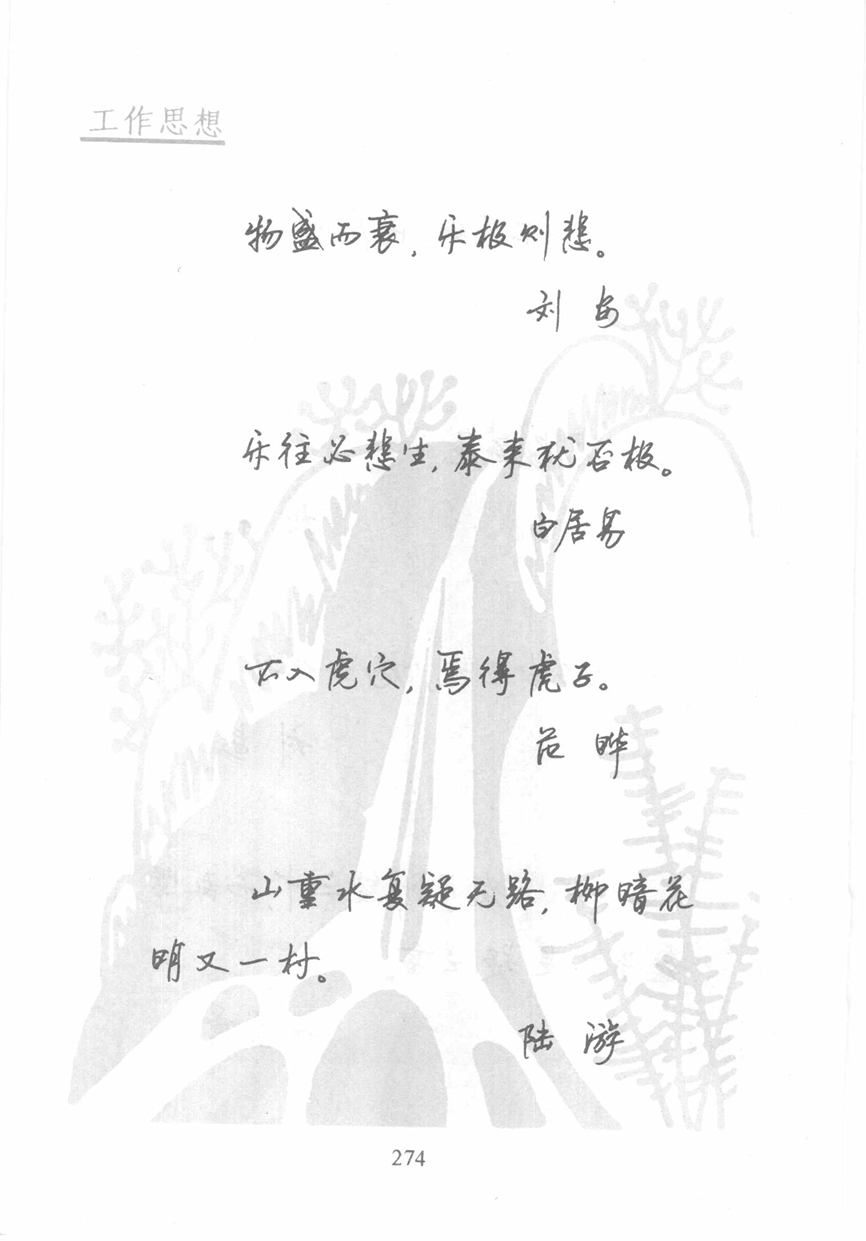 工作思想
物盛而衰，乐极则悲。
刘安
乐往必悲生，泰来犹否极。
白居易
不入虎穴，焉得虎子。
范晔
山重水复疑无路，柳暗花
明又一村。
陆游
274